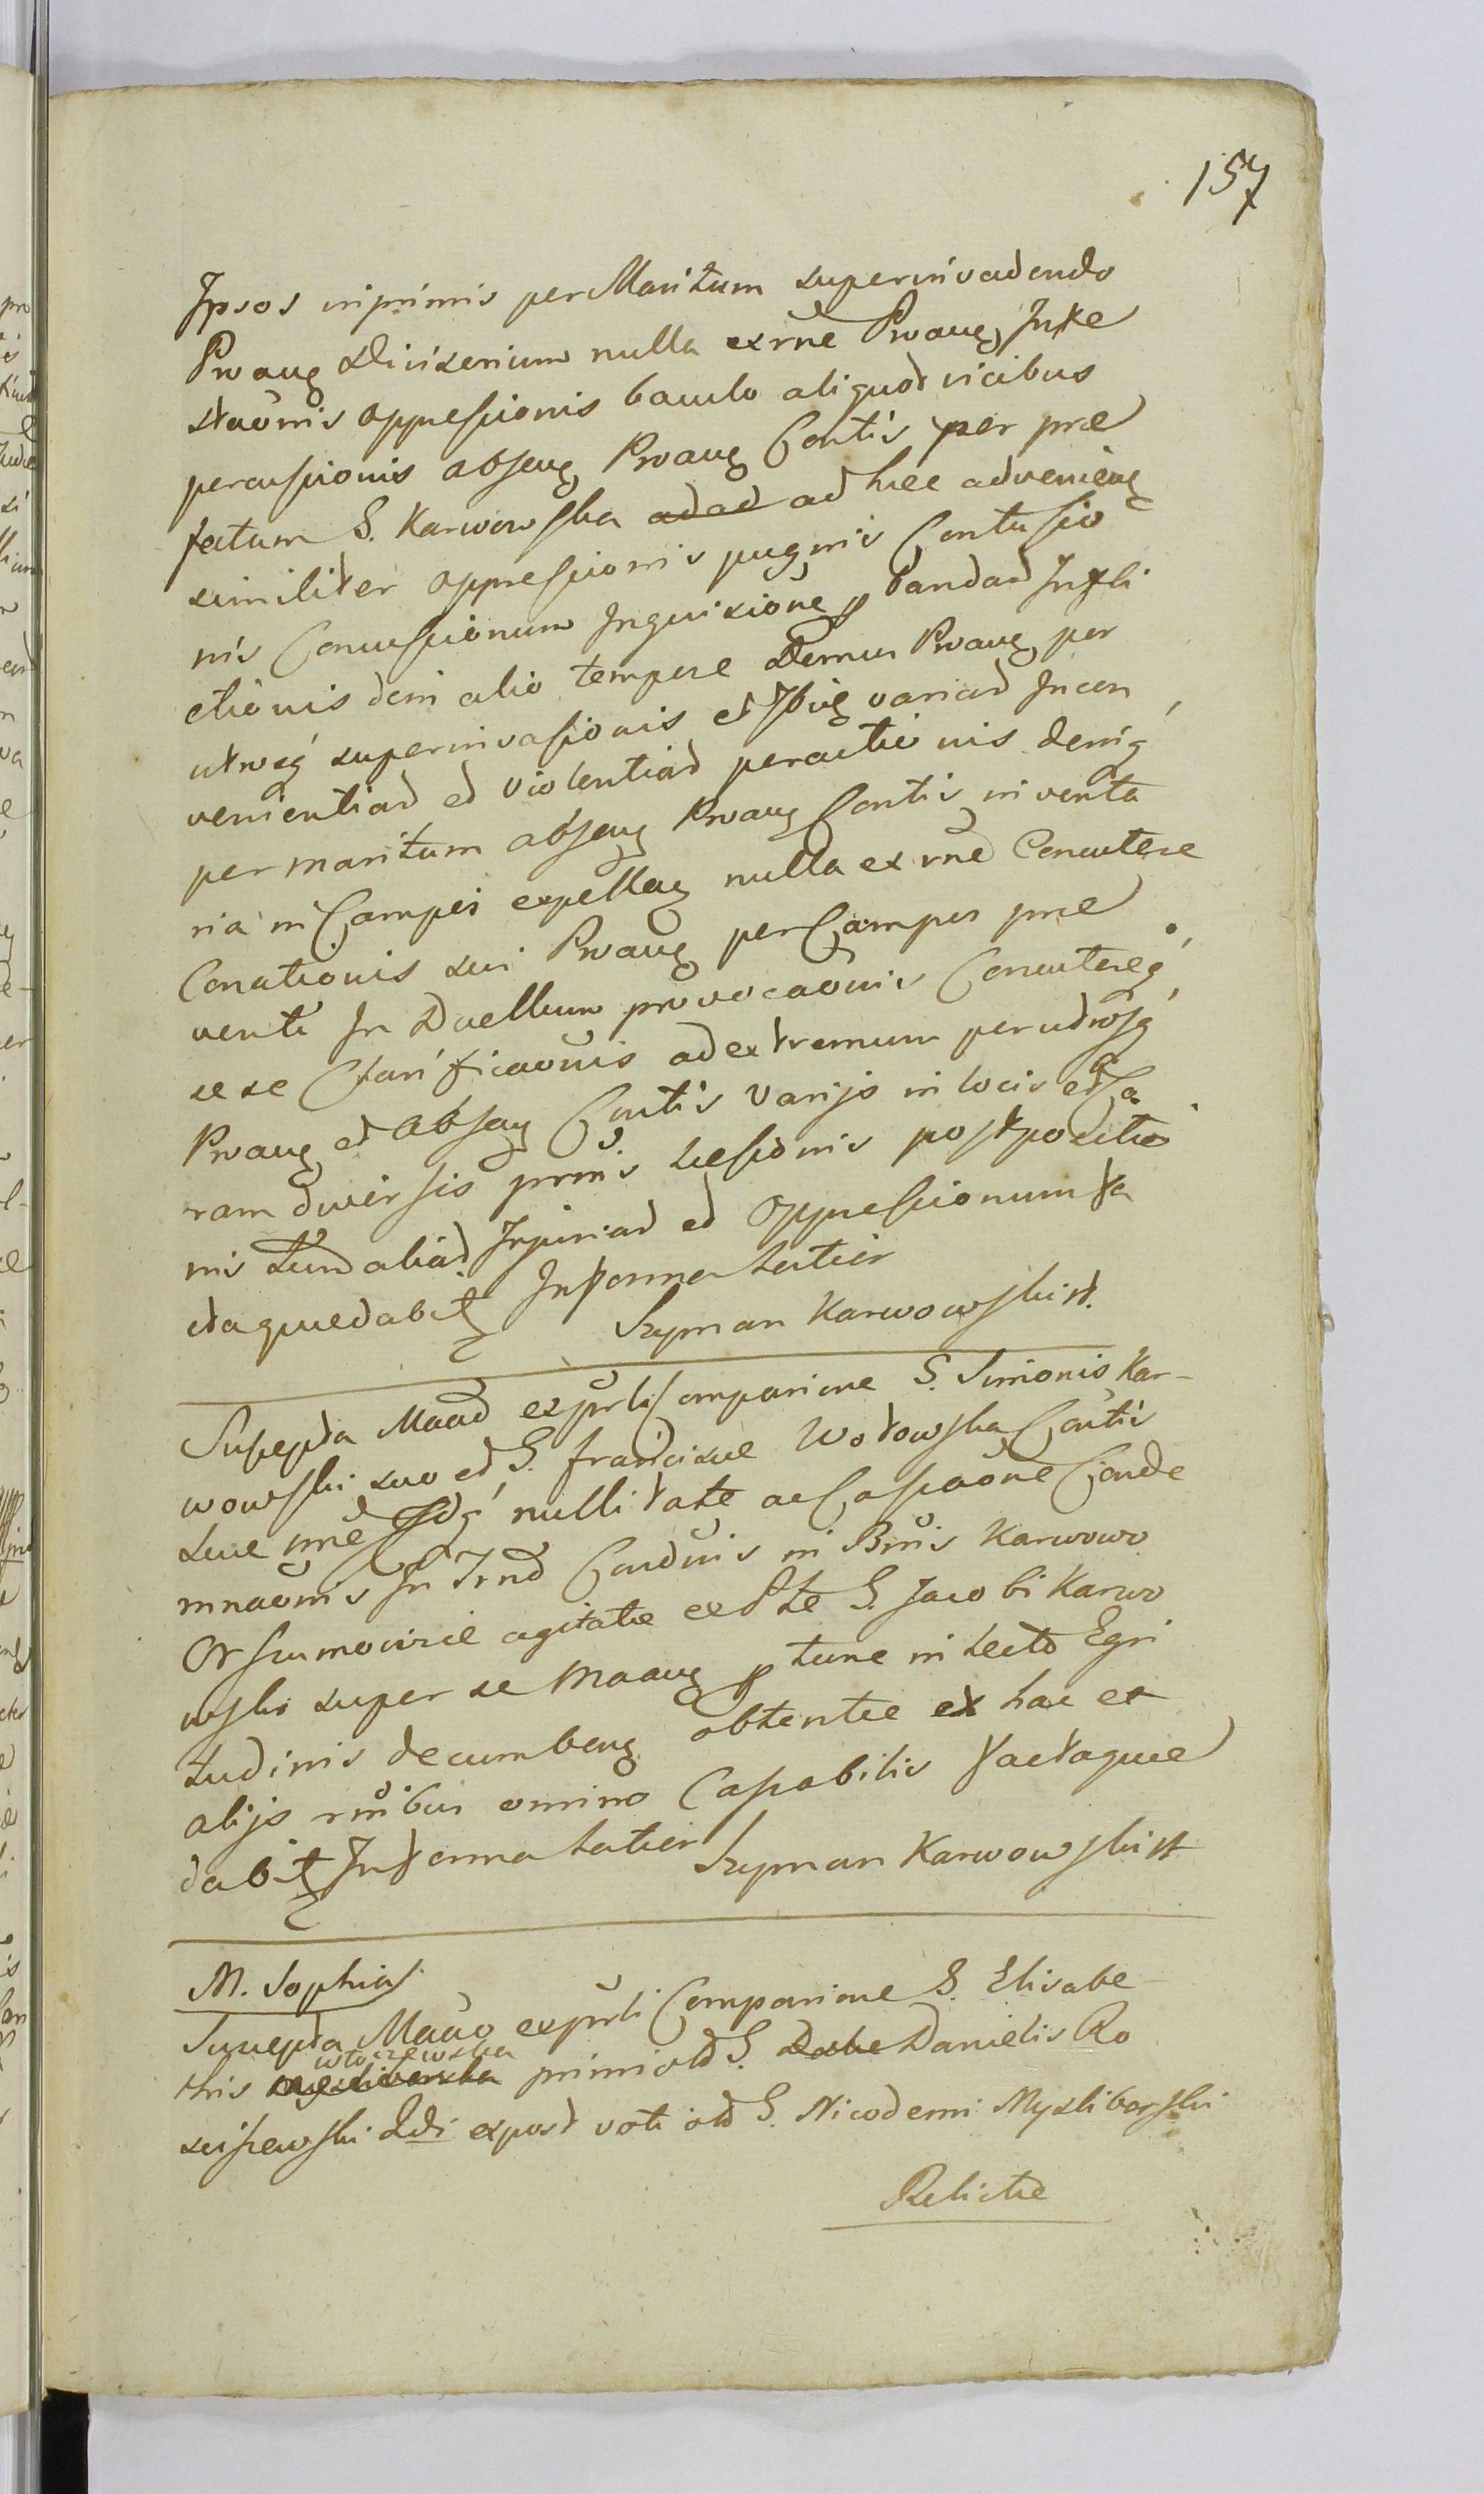 157
Ipsos inprimis per Maritum superinvadendo
Proang Diviserium nulla exrñe Proang, Infe
staoñis oppressionis baculo aliquod vicibus
percussionis absang Proang Contis per præ
fatam S. Karwowska ad hæc advenieng
similiter oppressionis pugnis Contusio
nis Concussionum Inquisioñe p dandad Infli
ctionis dein alio tempore Demus Proang per
utrosq superinvasionis et Ibiq variad Incon
venientiad ed violentiad peractionis deniq
per maritum absang Proang Contis inventa
ria in Campis expellang nulla ex rñe Concutere
Conationis sui Proang per Campus præ
venti In Duellum provocaoñis Concutereq
sese Charificaoñis ad extremum per utrosq
Proang et Absang Contis varijs in locis et Ca
ram diversis prñis læsionis postpositio
nis tum aliad Injuriad ed oppressionum fa
ctaquedabit Informa Latier
Szyman Karwowski st.
Suscepta Maad exprli Comparione S. Simonis Kar-
wowski suo ed S. franciscæ Wotowska Contis
suæ nñe nullitate ac Cassaoñe Conde
mnaoñis In Trnd Condnis in Bnis Karwowo
Orszumowizie agitatæ S. Jacobi Karwo
wski super se Maang p tunc in lecto Egri
tudinis decumbeng obtentæ ex hac et
alijs rñibus omino Cassabilis factaquæ
dabit Informa Latier Szyman Karwowski st
M. Sophia
Suscepta Maao exprli Comparione S. Elisabe
wloczewska
this primi old S. Danielis Ro
sciszewski 2di expost voti old S. Nicodemi Mysliborski
Relictæ